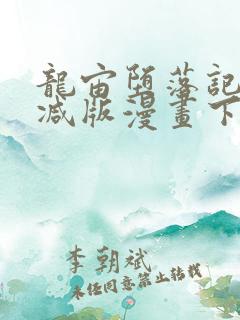 龍宙堕落記
減版漫畫下
李朝斌
未经同意禁止转载